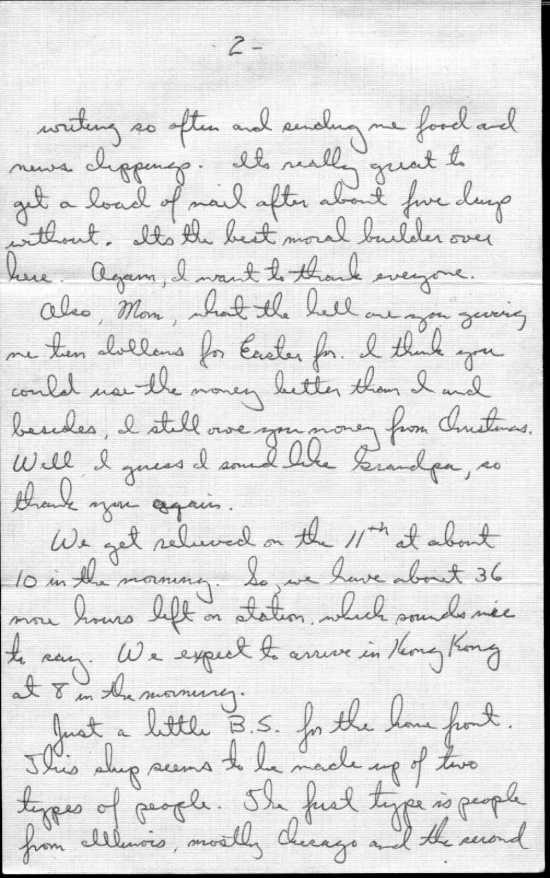 2-
writing so often and sending me food and
news clippings. Its really great to
get a load of mail after about five days
without. Its the best moral builder over
here. Again, I want to thank everyone.
Also, Mom, what the hell are you giving
me ten dollars for Easter for. I think you
could use the money better than I and
besides, I still owe you money from Christmas.
Well I guess I sound like Grandpa, so
thank you again.
We get relieved on the 11th at about
10 in the morning. So, we have about 36
more hours left on station, which sounds nice
to say. We expect to arrive in Hong Kong
at 8 in the morning.
Just a little B.S. for the home front.
This ship seems to be made up of two
types of people. The first type is people
from Illinois, mostly Chicago and the second